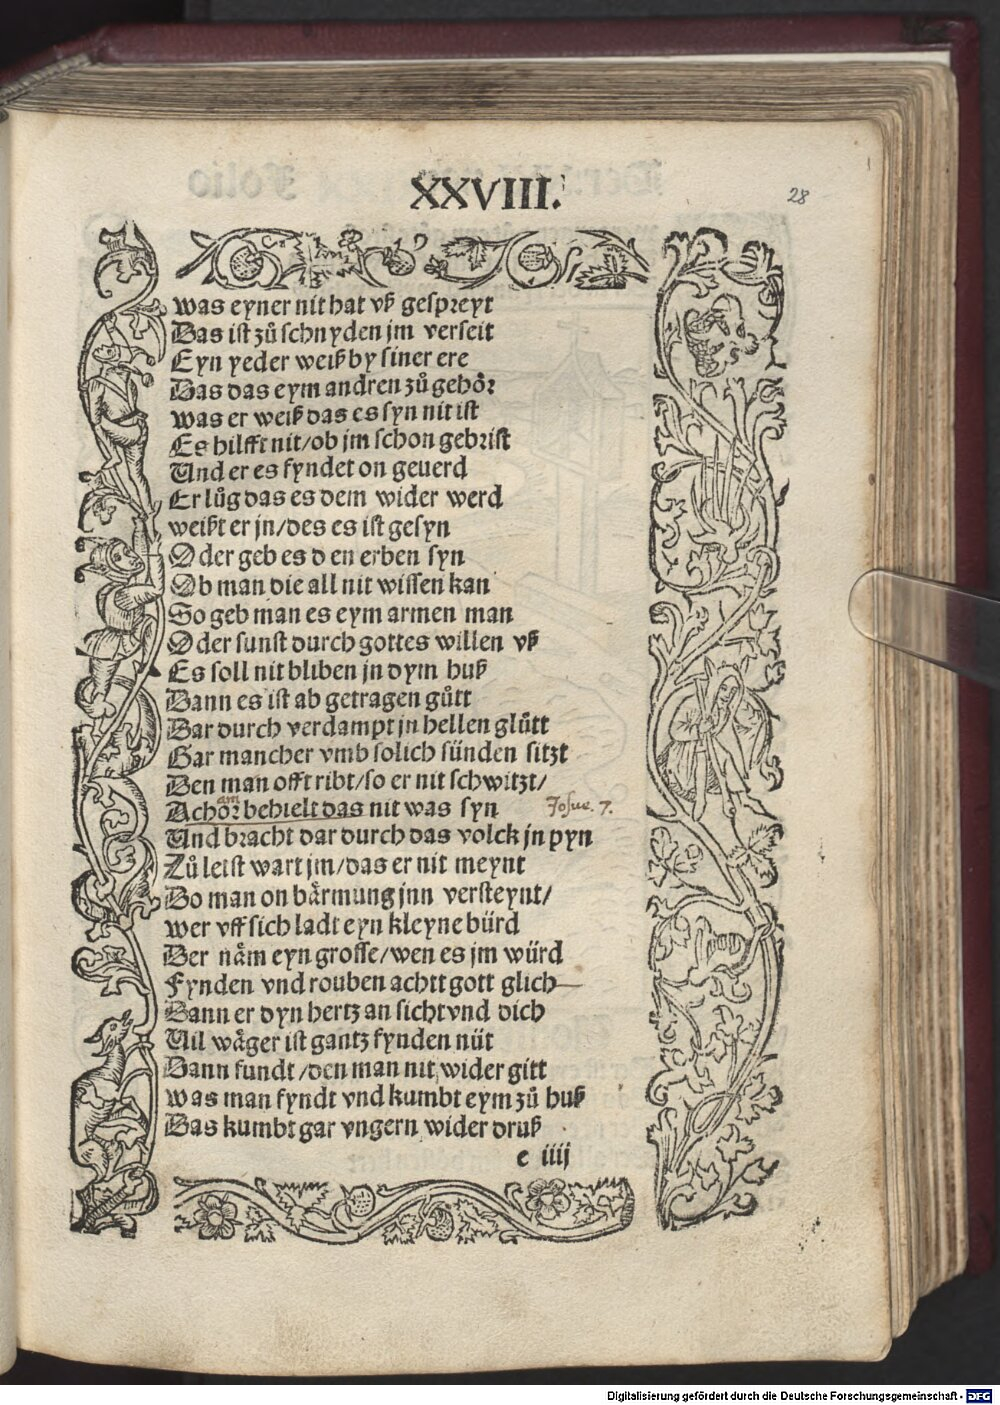 XXVIII.
28
was eyner nit hat vß gespreyt
Das ist zů schnyden jm verseit
Eyn yeder weiß by siner ere
Das das eym andren zů gehôr
was er weiß das es syn nit ist
Es hilfft nit/ob jm schon gebrist
Und er es fyndet on geuerd
Er lůg das es dem wider werd
weißt er jn/des es ist gesyn
Oder geb es den erben syn
Ob man die all nit wissen kan
So geb man es eym armen man
Oder sunst durch gottes willen vß
Es soll nit bliben jn dym huß
Dann es ist ab getragen gůtt
Dar durch verdampt jn hellen glůtt
Gar mancher vmb solich sünden sitzt
Den man offt ribt/so er nit schwitzt/
Achor behielt das nit was syn Josue. 7.
Und bracht dar durch das volck jn pyn
Zů leist wart jm/das er nit meynt
Do man on bârmung jnn versteynt/
wer vff sich ladt eyn kleyne bürd
Der nâm eyn grosse/wen es jm würd
Fynden vnd rouben achtt gott glich
Dann er dyn hertz an sicht vnd dich
Uil wâger ist gantz fynden nüt
Dann fundt/den man nit wider gitt
was man fyndt vnd kumbt eym zů huß
Das kumbt gar vngern wider druß
e iiij
Digitalisierung gefördert durch die Deutsche Forschungsgemeinschaft - DFG